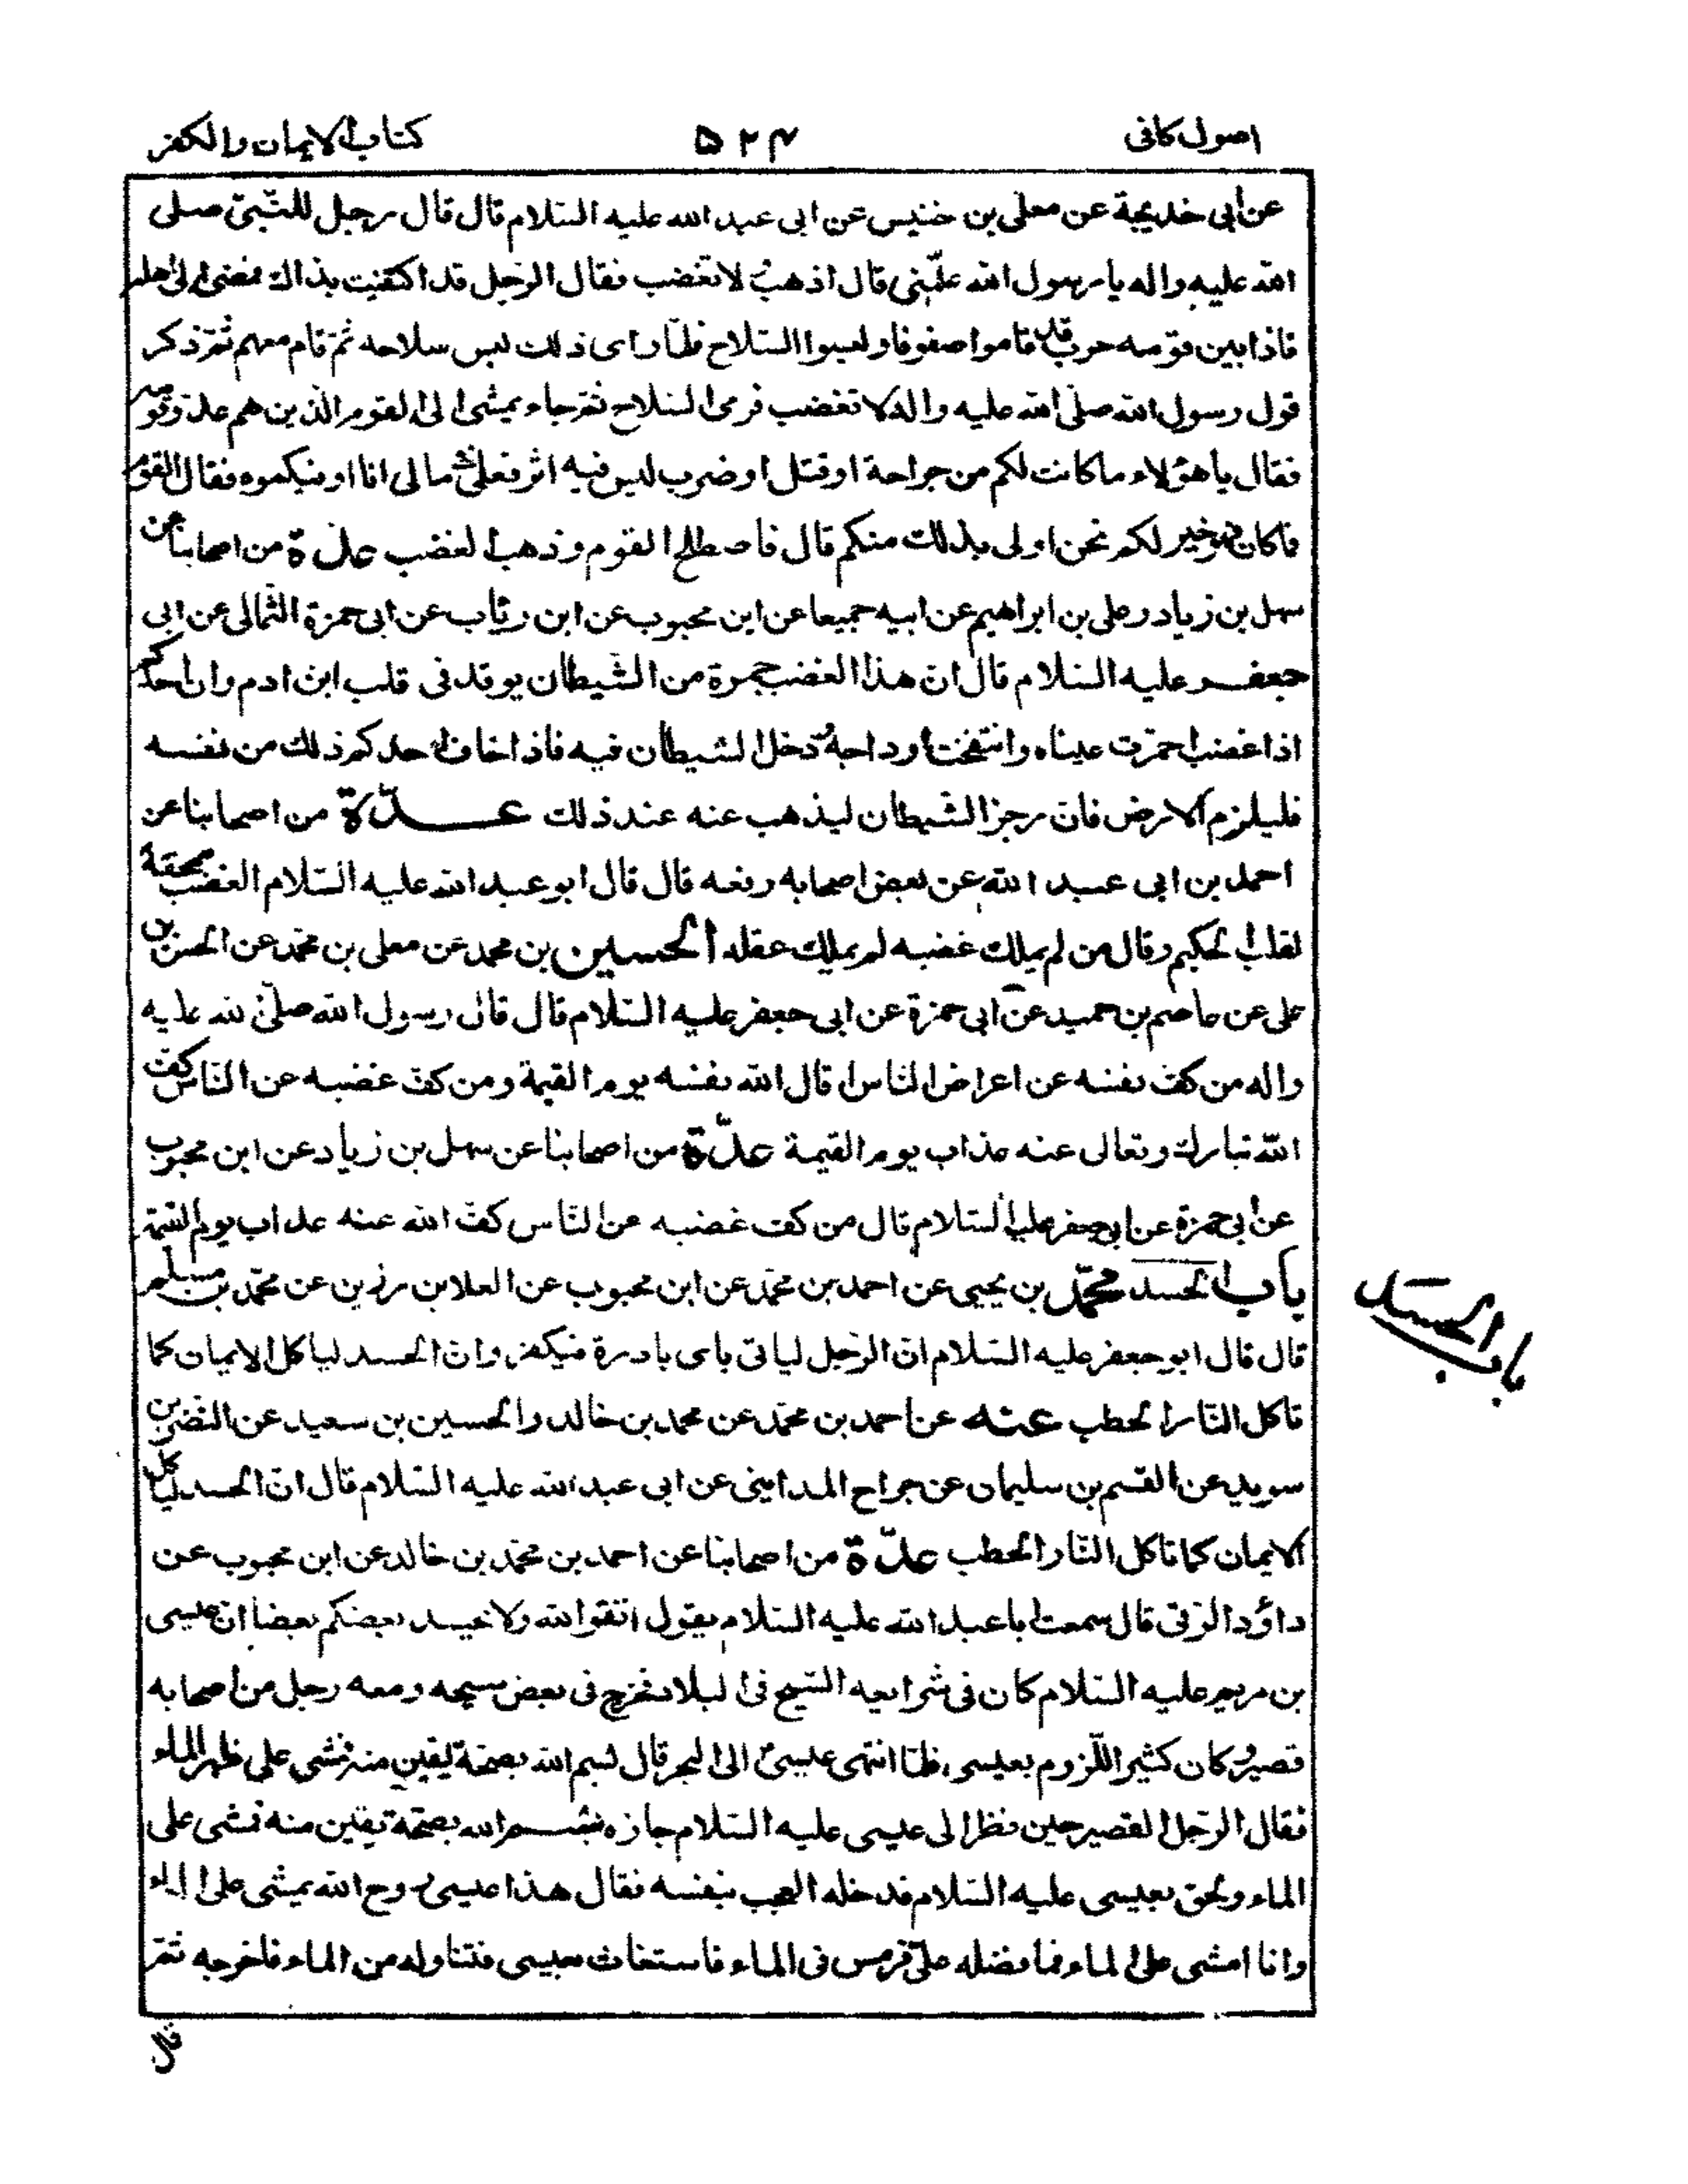 اصول كافى ٥٢٤ كتاب الايمان والكفر
عن ابى خديجة عن معلى بن خنيس عن ابى عبد الله عليه السّلام قال قال رجل للنّبىّ صلى
الله عليه واله يا رسول الله علّمنى قال اذهب لا تغضب فقال الرّجل قد اكتفيت بذاك فمضى الى اهله
فاذا بين قومه حرب قد قاموا صفوفا ولبسوا السّلاح فلمّا راى ذلك لبس سلاحه ثمّ قام معهم ثمّ ذكر
قول رسول الله صلّى الله عليه واله لا تغضب فرمى السّلاح ثمّ جاء يمشى الى القوم الّذين هم عدوّ قومه
فقال يا هؤلاء ما كانت لكم من جراحة او قتل او ضرب ليس فيه اثر فعلىّ فى مالى انا اوفيكموه فقال القوم
فما كان فهو خير لكم نحن اولى بذلك منكم قال فاصطلح القوم وذهب الغضب عدّة من اصحابنا عن
سهل بن زياد وعلى بن ابراهيم عن ابيه جميعا عن ابن محبوب عن ابن رئاب عن ابى حمزة الثّمالى عن ابى
جعفر عليه السّلام قال انّ هذا الغضب جمرة من الشّيطان يوقد فى قلب ابن ادم وان احدكم
اذا غضب احمرّت عيناه وانتفخت اوداجه ودخل الشيطان فيه فاذا خاف احدكم ذلك من نفسه
فليلزم الارض فانّ رجز الشّيطان ليذهب عنه عند ذلك عدّة من اصحابنا عن
احمد بن ابى عبد الله عن بعض اصحابه رفعه قال قال ابو عبد الله عليه السّلام الغضب ممحقة
لقلب الحكيم وقال من لم يملك غضبه لم يملك عقله الحسين بن محمد عن معلى بن محمّد عن الحسن بن
على عن عاصم بن حميد عن ابى حمزة عن ابى جعفر عليه السّلام قال قال رسول الله صلّى الله عليه
واله من كفّ نفسه عن اعراض النّاس اقال الله نفسه يوم القيمة ومن كفّ غضبه عن النّاس كفّ
الله تبارك وتعالى عنه عذاب يوم القيمة عدّة من اصحابنا عن سهل بن زياد عن ابن محبوب
عن ابى حمزة عن ابى جعفر عليه السّلام قال من كفّ غضبه عن النّاس كفّ الله عنه عذاب يوم القيمة
باب الحسد محمّد بن يحيى عن احمد بن محمّد عن ابن محبوب عن العلا بن رزين عن محمّد بن مسلم
قال قال ابو جعفر عليه السّلام انّ الرّجل لياتى باى بادرة فيكفر وانّ الحسد لياكل الايمان كما
تاكل النّار الحطب عنه عن احمد بن محمّد عن محمد بن خالد والحسين بن سعيد عن النّضر بن
سويد عن القسم بن سليمان عن جراح المداينى عن ابى عبد الله عليه السّلام قال انّ الحسد ياكل
الايمان كما تاكل النّار الحطب عدّة من اصحابنا عن احمد بن محمّد بن خالد عن ابن محبوب عن
داؤد الرّقى قال سمعت ابا عبد الله عليه السّلام يقول اتقوا الله ولا يحسد بعضكم بعضا ان عيسى
بن مريم عليه السّلام كان فى شرايعه السّيح فى البلاد فخرج فى بعض سيحه ومعه رجل من اصحابه
قصير وكان كثير اللّزوم بعيسى فلمّا انتهى عيسى الى البحر قال بسم الله بصحّة يقين منه فمشى على ظهر الماء
فقال الرّجل القصير حين نظر الى عيسى عليه السّلام جازه بسم الله بصحّة يقين منه فمشى على
الماء ولحق بعيسى عليه السّلام فدخله العجب بنفسه فقال هذا عيسى روح الله يمشى على الماء
وانا امشى على الماء فما فضله علىّ فرمس فى الماء فاستغاث بعيسى فتناوله من الماء فاخرجه ثمّ
قال
باب الحسد